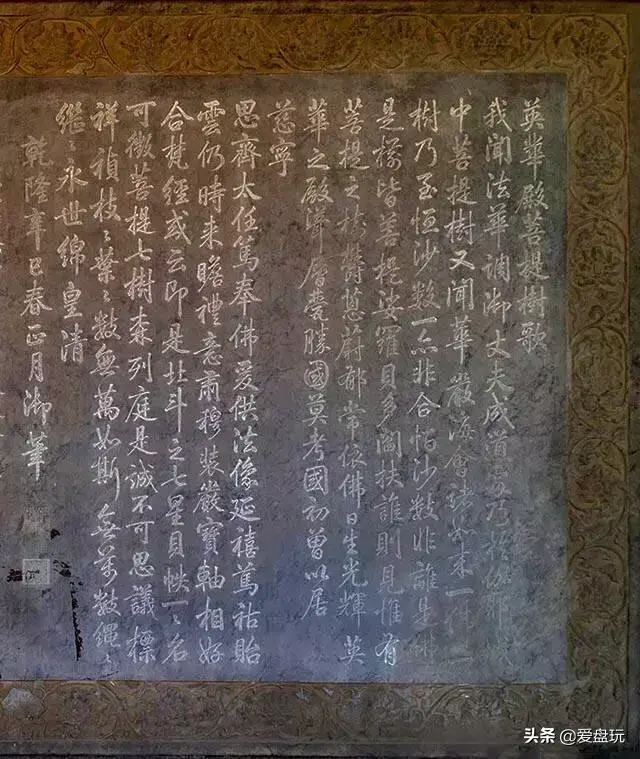 英華殿菩提樹歌
我聞法華調御丈夫成道乃於伽耶城
中菩提樹又聞華嚴海會諸如來一佛一
樹乃至恒沙數一亦非合恒沙數非離是佛
是樣皆菩提娑羅貝多閻扶誰則見惟有
菩提之樹鬱蔥蔚郁常依佛日生光輝英
華之殿溯層甍勝國莫考國初曾以居
慈寧
思齊太任篤奉佛爰供法像延禧篤祜貽
雲仍時来瞻禮意肅穆裝嚴寶軸相好
合梵經或云即是北斗之七星貝帙一二名
可徵菩提七樹森列庭是誠不可思議標
祥禎枝〻葉〻數無萬如斯無萬數繩〻
繼〻永世綿皇清
乾隆辛巳春正月御筆
头条 @爱盘玩